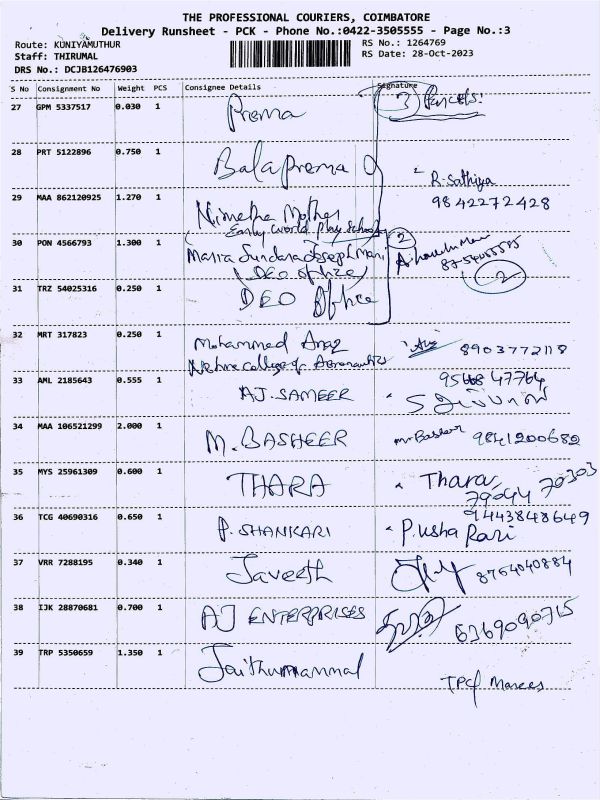 THE PROFESSIONAL COURIERS, COIMBATORE
Delivery Runsheet - PCK - Phone No.:0422-3505555 - Page No.:3
Route: KUNIYAMUTHUR RS No.: 1264769
Staff: THIRUMAL RS Date: 28-Oct-2023
DRS No.: DCJB126476903
S No Consignment No Weight PCS Consignee Details Signature
27 GPM 5337517 0.030 1 Prema 3 Parcels:
28 PRT 5122896 0.750 1 Bala Prema
R. Sathiya
29 MAA 862120925 1.270 1 9842272428
Nimetha Mother
Early World Play School
30 PON 4566793 1.300 1 2
Maria Sundara Joseph Mani
(DEO office) 2
31 TRZ 54025316 0.250 1 DEO Office
32 MRT 317823 0.250 1 Mohammed 8903772118
Nehru College of Aeronautics
33 AML 2185643 0.555 1 47764
AJ. SAMEER
34 MAA 106521299 2.000 1 M. BASHEER mr Basheer 9841200682
35 MYS 25961309 0.600 1 THARA Thara
79044 70303
36 TCG 40690316 0.650 1 9443848649
P. SHANKARI P. usha Rani
37 VRR 7288195 0.340 1 Javeeth 8764040884
38 IJK 28870681 0.700 1 AJ ENTERPRISES 6369090715
39 TRP 5350659 1.350 1 Jaithummammal